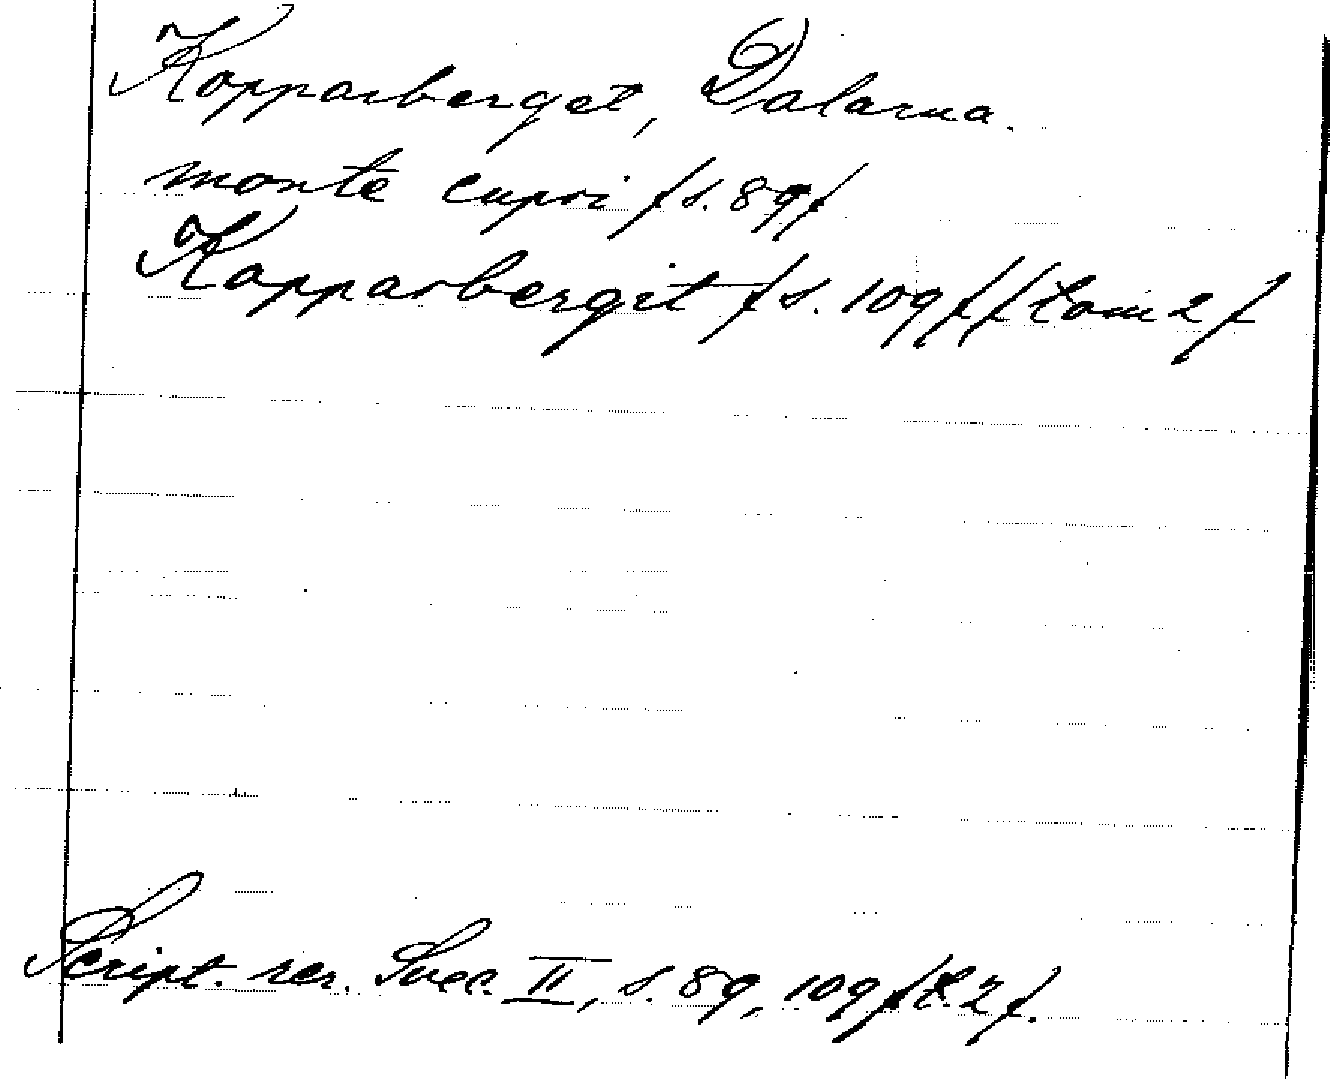 Kopparberget, Dalarna.
monte cupri /s. 89/
Kopparbergit /s. 109//tom 2/
Script. rer. Svec. II, s. 89, 109 /t. 2/.